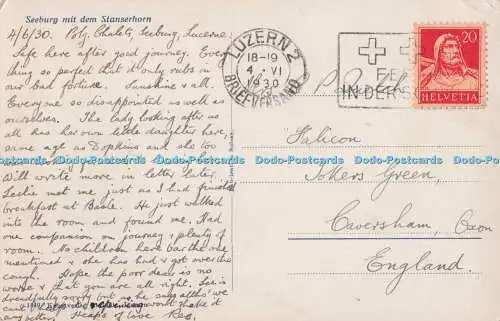 Seeburg mit dem Stanserhorn
4/6/30. Poly. Chalets, Seeburg, Lucerne.
Safe here after good journey. Every
thing so perfect that it only rubs in
our bad fortune. Sunshine & all.
Everyone so disappointed as well as
ourselves. The lady looking after us
all has her own little daughter here,
same age as Dophins and she too
Will write more in letter later.
Leslie met me just as I had finished
breakfast at Basle. He just walked
into the room and found me. Had
one companion on journey & plenty of
room. No children here bar the one
mentioned & she has had & got over the
cough. Hope the poor dear is no
worse & that you are all right. Les is
dreadfully sorry but as he says all tho' we
can't
won't make it
any
Heaps of love Reg.
LUZERN 2
18-19
4. VI
1930
BRIEFVERSAND
IN DER S
20
HELVETIA
Halicon
Tokers Green,
Caversham, Oxon
England.
Dodo-Postcards Dodo-Postcards Dodo-Postcards Dodo-Postcards Dodo-Postcards